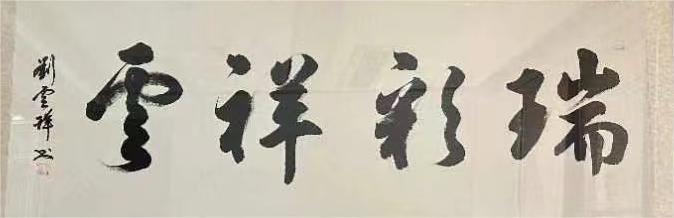 瑞彩祥雲
劉雲祥書